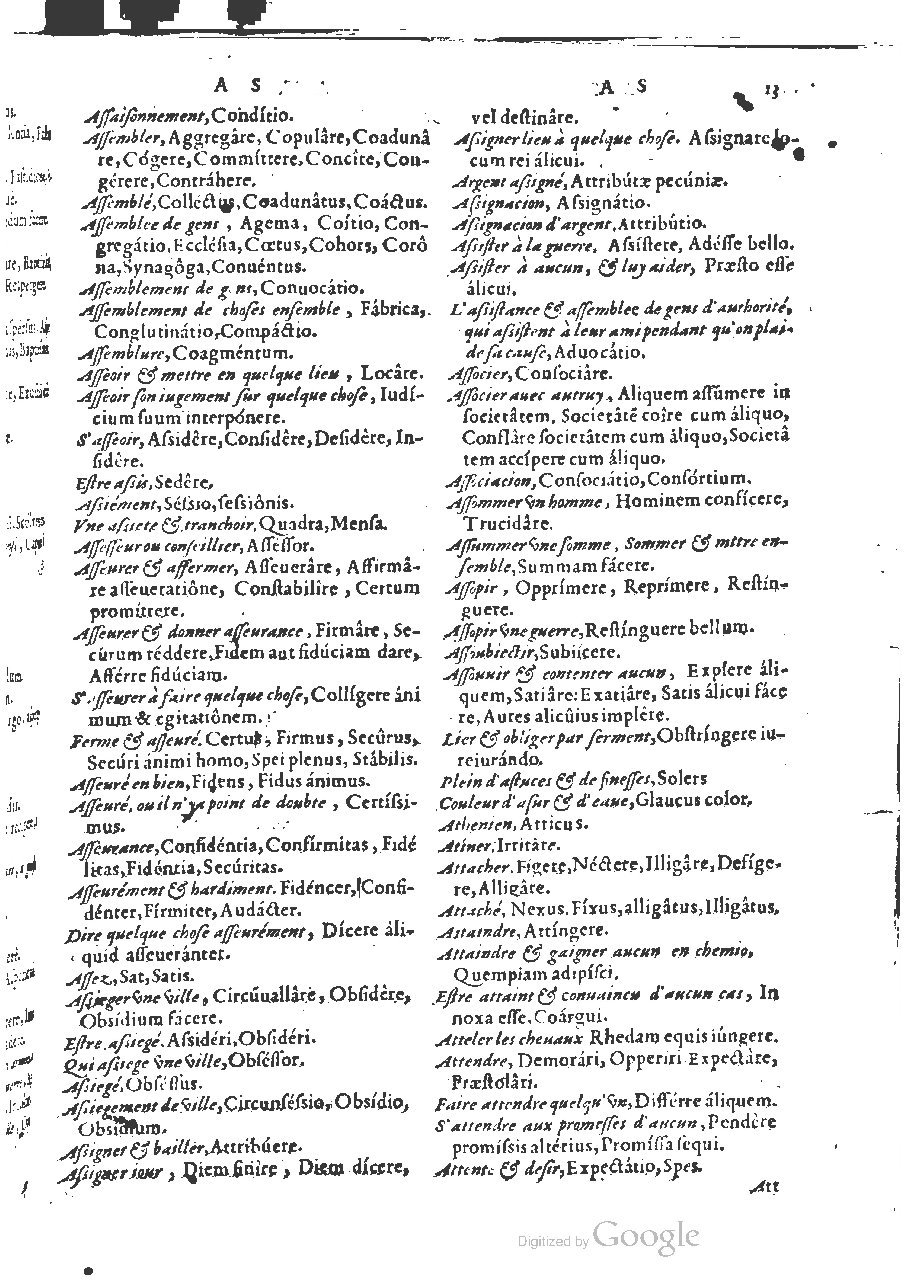 A S
Aſſaiſonnement, Condítio.
Aſſembler, Aggregâre, Copulâre, Coadunâ
re, Cógere, Commíttere, Concîre, Con-
gérere, Contráhere.
Aſſemblé, Colléctus, Coadunâtus, Coáctus.
Aſſemblee de gent, Agema, Coítio, Con-
gregátio, Eccléſia, Cœtus, Cohors, Corô
na, Synagôga, Conuéntus.
Aſſemblement de gens, Conuocátio.
Aſſemblement de choſes enſemble, Fábrica,
Conglutinátio, Compáctio.
Aſſemblure, Coagméntum.
Aſſeoir & mettre en quelque lieu, Locâre.
Aſſeoir ſon iugement ſur quelque choſe, Iudí-
cium ſuum interpónere.
S'aſſeoir, Aſsidêre, Conſidêre, Deſidêre, In-
ſidêre.
Eſtre aſsis, Sedêre.
Aſsiément, Séſsio, ſeſsiônis.
Vne aſsiete & tranchoir, Quadra, Menſa.
Aſſeſſeur ou conſeillier, Aſſéſſor.
Aſſeurer & affermer, Aſſeuerâre, Affirmâ-
re aſſeueratiône, Conſtabilîre, Certum
promíttere.
Aſſeurer & donner aſſeurance, Firmâre, Se-
cûrum réddere, Fidem aut fidúciam dare,
Afférre fidúciam.
S'aſſeurer à faire quelque choſe, Collígere áni
mum & cgitatiônem.
Ferme & aſſeuré. Certus, Firmus, Secûrus,
Secúri ánimi homo, Spei plenus, Stábilis.
Aſſeuré en bien, Fidens, Fidus ánimus.
Aſſeuré, ou il n'y a point de doubte, Certíſsi-
mus.
Aſſeurance, Confidéntia, Confírmitas, Fidé
litas, Fidéntia, Secúritas.
Aſſeurément & hardiment. Fidéncer, Confi-
dénter, Fírmiter, Audácter.
Dire quelque choſe aſſeurément, Dícere áli-
quid aſſeueránter.
Aſſez, Sat, Satis.
Aſsieger vne ville, Circúuallâre, Obſidêre,
Obsídium fácere.
Eſtre aſsiegé. Aſsidéri, Obſidéri.
Qui aſsiege vne ville, Obſéſſor.
Aſsiegé, Obſéſſus.
Aſsiegement de ville, Circunſéſsio, Obsídio,
Obsídium.
Aſsigner & bailler, Attribúere.
Aſsigner iour, Diem finíre, Diem dícere,
A S 13
vel deſtinâre.
Aſsigner lieu à quelque choſe. Aſsignare lo-
cum rei álicui.
Argent aſsigné, Attribútæ pecúniæ.
Aſsignacion, Aſsignátio.
Aſsignacion d'argent, Attribútio.
Aſsiſter à la guerre, Aſsíſtere, Adéſſe bello.
Aſsiſter à aucun, & luy aider, Præſto eſſe
álicui.
L'aſsiſtance & aſſemblee de gens d'authorité,
qui aſsiſtent à leur ami pendant qu'on plai-
de ſa cauſe, Aduocátio.
Aſſocier, Conſociâre.
Aſſocier auec autruy, Aliquem aſſûmere in
ſocietâtem. Societâtẽ coîre cum áliquo,
Conflâre ſocietâtem cum áliquo, Societâ
tem accípere cum áliquo.
Aſſociacion, Conſociátio, Conſórtium.
Aſſommer vn homme, Hominem confícere,
Trucidâre.
Aſſummer vne ſomme, Sommer & mttre en-
ſemble, Summam fácere.
Aſſopir, Opprímere, Reprímere, Reſtín-
guere.
Aſſopir vne guerre, Reſtínguere bellum.
Aſſubiectir, Subiícere.
Aſſouuir & contenter aucun, Explere áli-
quem, Satiâre: Exatiâre, Satis álicui fáce
re, Aures alicûius implêre.
Lier & obliger par ſerment, Obſtríngere iu-
reiurándo.
Plein d'aſtuces & de fineſſes, Solers
Couleur d'aſur & d'eaue, Glaucus color.
Athenien, Atticus.
Atiner, Irritâre.
Attacher. Fígere, Néctere, Illigâre, Defíge-
re, Alligâre.
Attaché, Nexus. Fíxus, alligâtus, Illigâtus.
Attaindre, Attíngere.
Attaindre & gaigner aucun en chemin,
Quempiam adipíſci.
Eſtre attaint & conuaincu d'aucun cas, In
noxa eſſe, Coárgui.
Atteler les cheuaux Rhedam equis iúngere.
Attendre, Demorári, Opperiri Expectâre,
Præſtolâri.
Faire attendre quelqu'vn, Differre áliquem.
S'attendre aux promeſſes d'aucun, Pendêre
promíſsis altérius, Promíſſa ſequi.
Attente & deſir, Expectátio, Spes.
Att
Digitized by Google